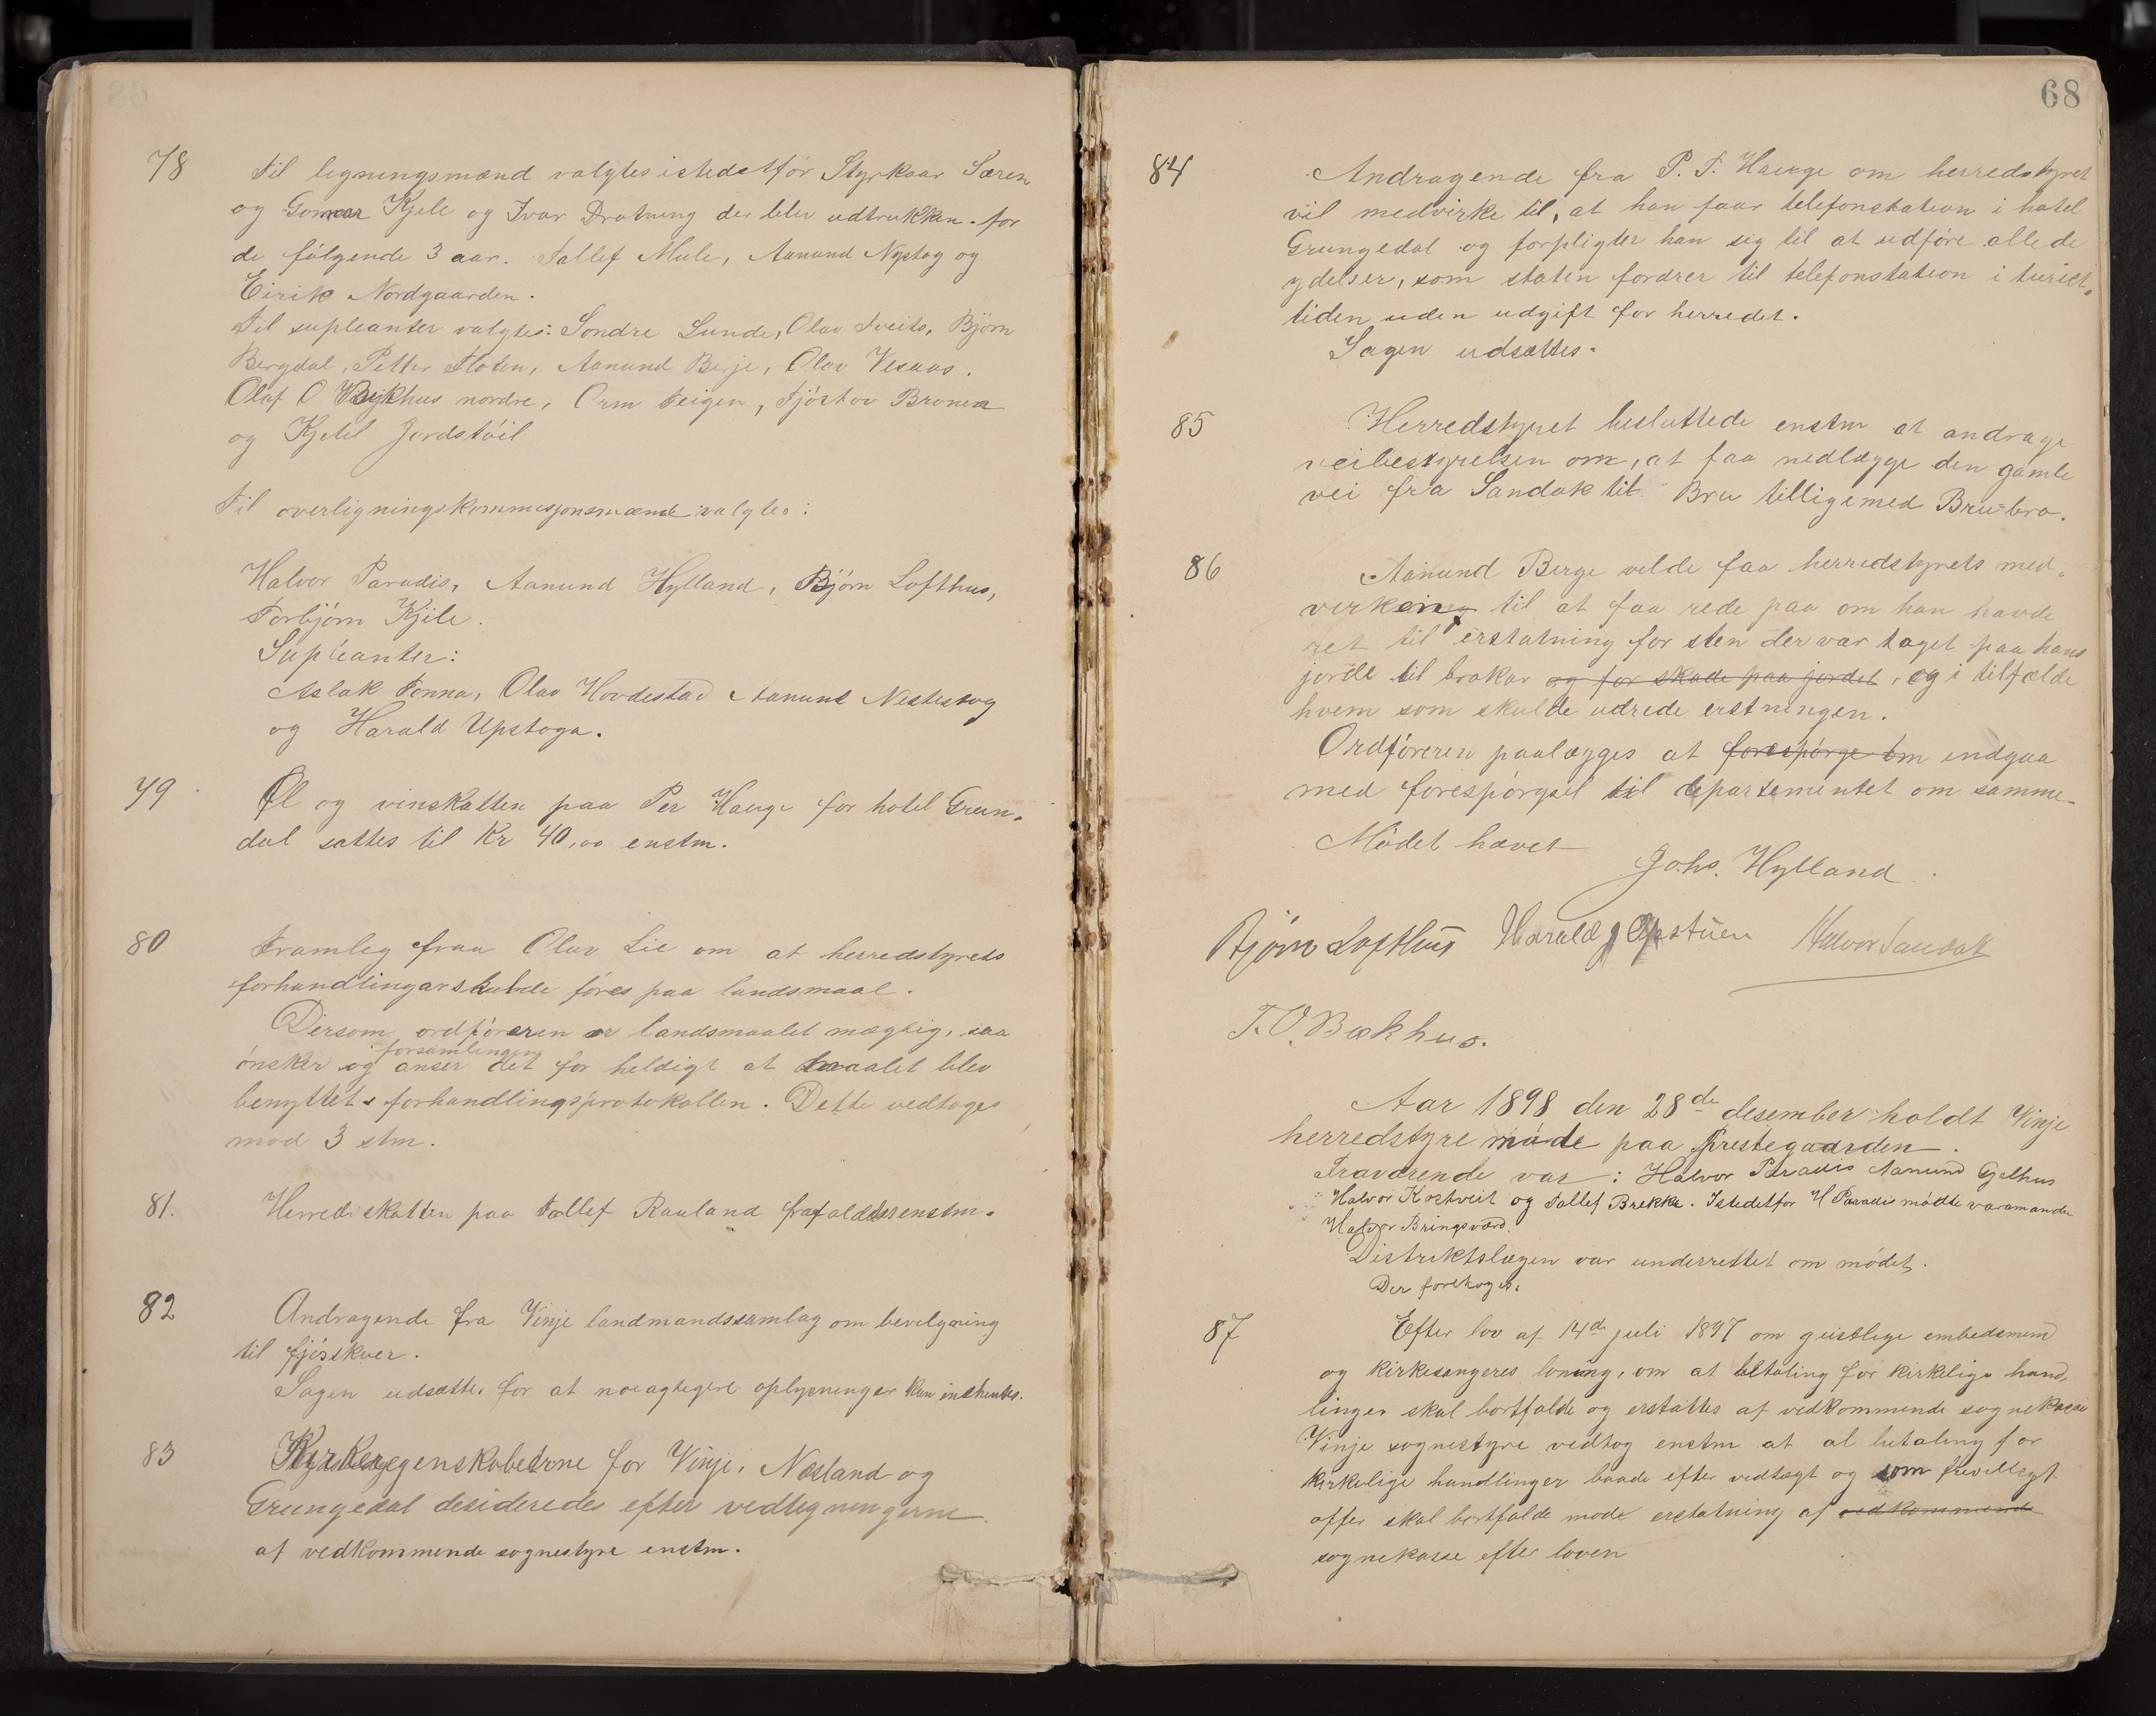 78 Til ligningsmænd valgtes istedetfor Styrkaar Særen
og Gunnar Kjele og Ivar Drotning der blev udtrukken. for
de følgende 3 aar. Tallef Mule, Aanund Nystog og
Eirik Nordgaarden.
Til supleanter valgtes: Sondre Lunde, Olav Tveito, Björn
Bergdal, Petter Floten, Aanund Berje, Olav Vesaas.
Olaf O Bækhus nordre, Orm Teigen, Tjöstov
og Kjetil Jordstöil
Til overligningskommisjonsmænd valgtes:
Halvor Paradis, Aanund Hylland, Björn Lofthus,
Torbjörn Kjile.
Supleanter:
Aslak Tonna, Olav Hovdestad Aanund Nestestog
og Harald Upstoga.
79 Øl og vinskatten paa Per Hauge for hotel Grun-
dal sattes til Kr 40,00 enstm.
80 Framleg fraa Olav Lie om at herredstyrets
forhandlingar skulde føres paa landsmaal.
Dersom ordføreren er landsmaalet mægtig, saa
forsamlingen
ønsker og anser det for heldigt at maalet blev
benyttet i forhandlingsprotokollen. Dette vedtoges
mod 3 stm.
81. Herredskatten paa Tallef Rauland frafaldtes enstm.
82 Andragende fra Vinje landmandssamlag om bevilgning
til fjösskuer.
Sagen udsættes for at noiagtigere oplysninger kan indhentes.
83 Kirkeregenskaberne for Vinje, Nesland og
Grungedal desideredes efter vedtegningerne
af vedkommende sognestyre enstm.
68
84 Andragende fra P. T. Hauge om herredstyret
vil medvirke til, at han faar telefonstation i hotel
Grungedal og forpligter han sig til at udføre alle de
ydelser, som staten fordrer til telefonstation i turist-
tiden uden udgift for herredet.
Sagen udsættes.
85 Herredstyret besluttede enstm at andrage
veibestyrelsen om, at faa nedlægge den gamle
vei fra Sandok til Bru tilligemed Bru-bro.
86 Aanund Berge vilde faa herredstyrets med-
virkning til at faa rede paa om han havde
ret til erstatning for sten der var taget paa hans
jorde til brokar og for skade paa jordet, og i tilfælde
hvem som skulde udrede erstningen.
Ordføreren paalægges at forespørge om indgaa
med forespørgsel til departementet om samme.
Mødet hævet
Johs. Hylland.
Bjørn Lofthus Harald J Opstuen Halvor Sandok
T. O. Bækhus.
Aar 1898 den 28de desember holdt Vinje
herredstyre møde paa prestegaarden.
Fraværende var: Halvor Paradis Aanund Gjelhus
Halvor Kostveit og Tallef Brekke. Istedetfor H Paradis mødte varamanden
Halvor Bringsværd.
Distriktslægen var underrettet om mødet.
Der foretoges:
87 Efter lov af 14de juli 1897 om geistlige embedsmend
og kirkesangeres lønning, om at betaling for kirkelige hand-
linger skal bortfalde og erstattes af vedkommende sognekasse
Vinje sognestyre vedtog enstm at al betaling for
kirkelige handlinger baade efter vedtægt og som frivilligt
offer skal bortfalde mode erstatning af vedkommende
sognekasse efter loven